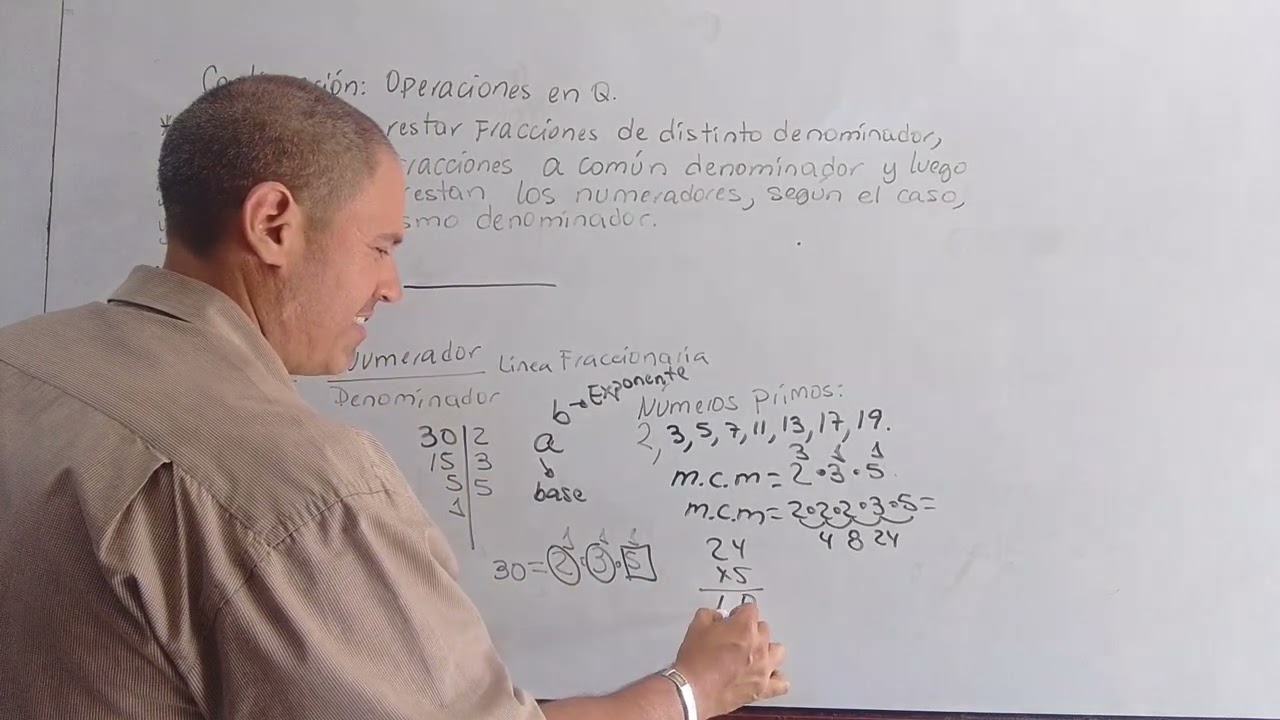 ción: Operaciones en Q.
restar Fracciones de distinto denominador,
racciones a común denominador y luego
restan los numeradores, según el caso,
smo denominador.
Numerador Línea Fraccionaria
Denominador
b→Exponente
a
base
30 | 2
15 | 3
5 | 5
1
30=2¹·3¹·5¹
Números Primos:
2, 3, 5, 7, 11, 13, 17, 19.
m.c.m=2³·3¹·5¹
m.c.m=2·2·2·3·5=
4 8 24
24
x5